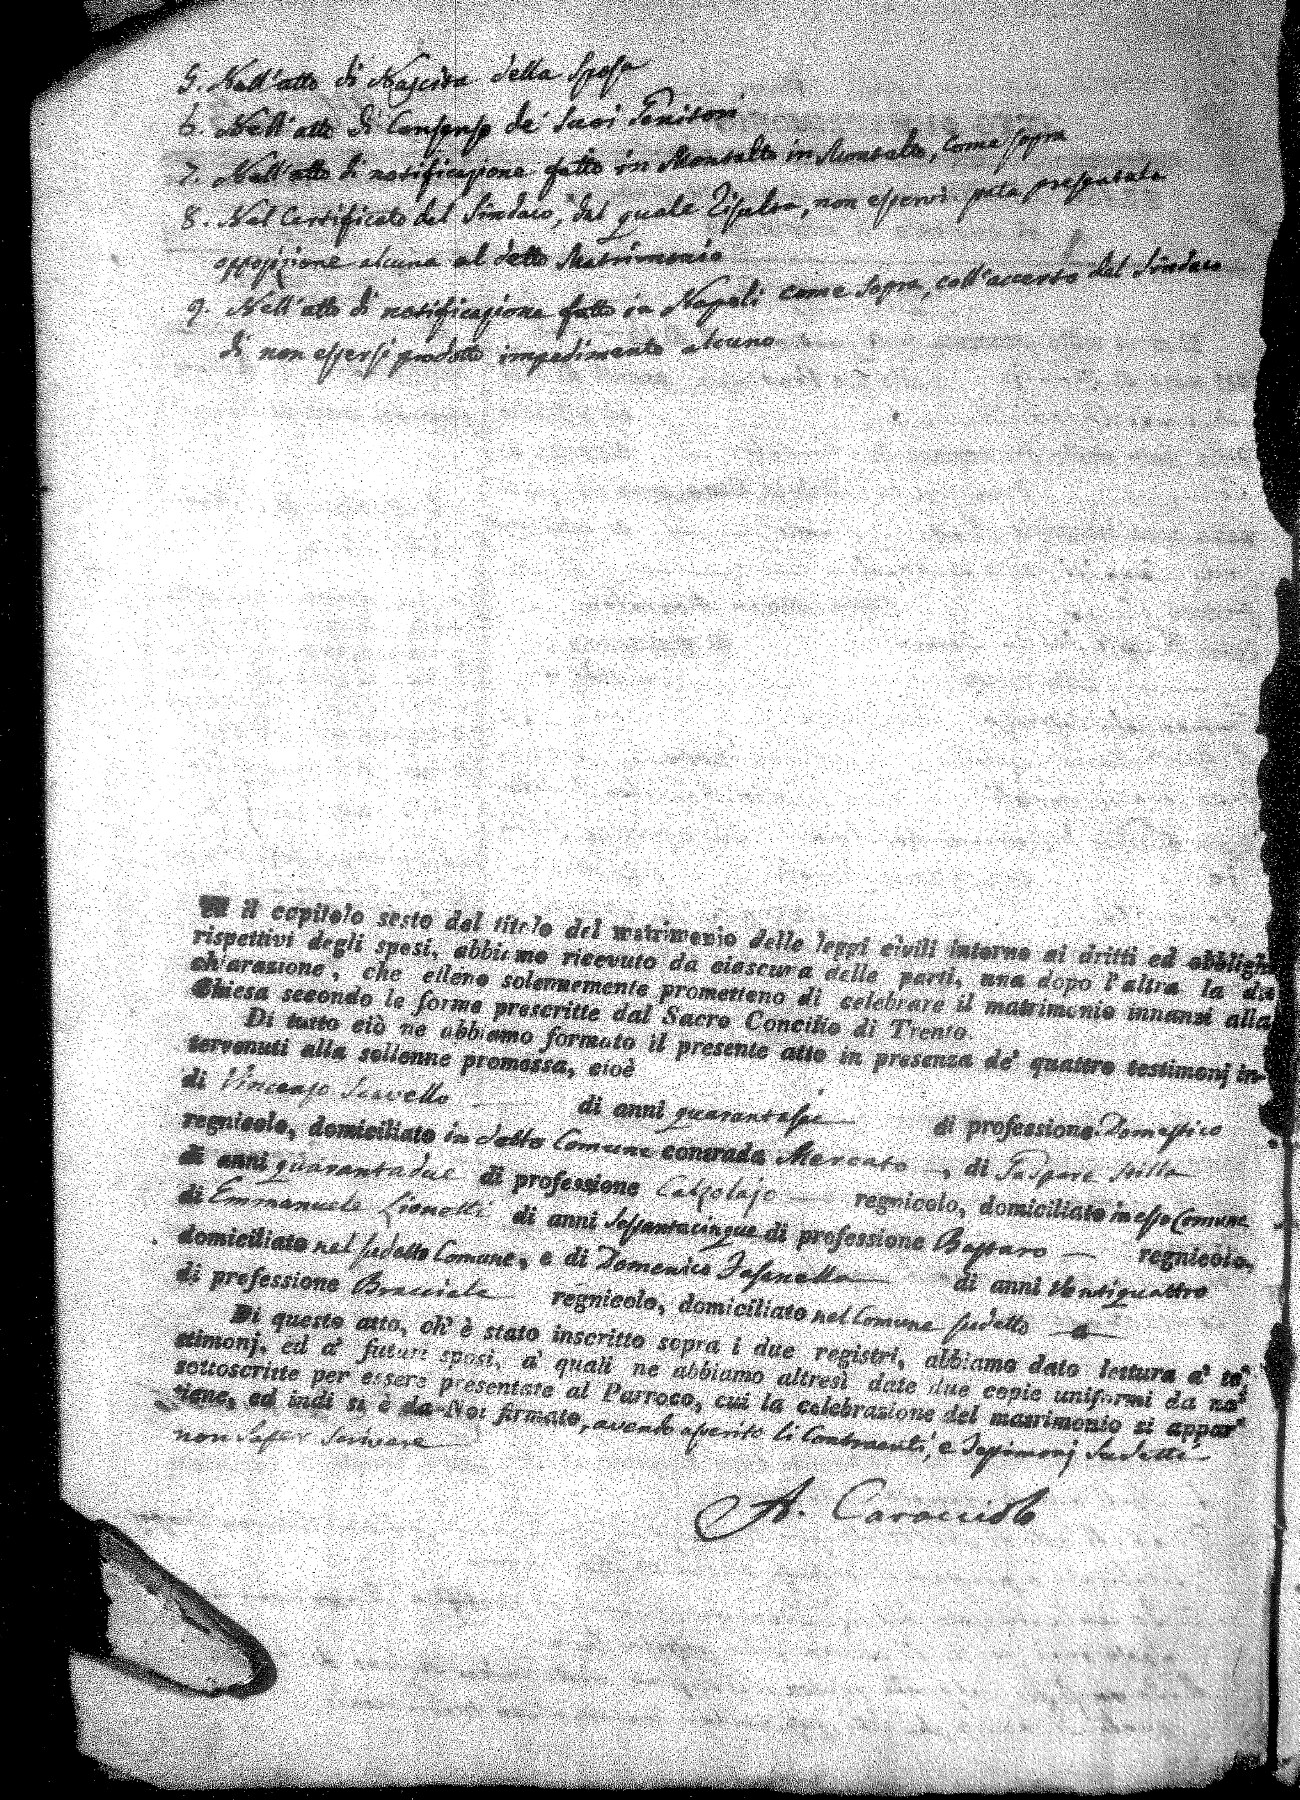 5. Nell'atto di Nascita della Sposa
6. Nell'atto di Consenso de' suoi Genitori
7. Nell'atto di notificazione fatto in Montalto in Montalto, come sopra
8. Nel Certificato del Sindaco, dal quale Risulta, non essersi presentata
opposizione alcuna al detto Matrimonio
9. Nell'atto di notificazione fatto in Napoli come sopra, coll'accerto del Sindaco
di non essersi prodotto impedimento alcuno
il capitolo sesto del titolo del matrimonio delle leggi civili intorno ai dritti ed obblighi
rispettivi degli sposi, abbiamo ricevuto da ciascuna delle parti, una dopo l'altra la di
chiarazione, che elleno solennemente promettono di celebrare il matrimonio innanzi alla
Chiesa secondo le forme prescritte dal Sacro Concilio di Trento.
Di tutto ciò ne abbiamo formato il presente atto in presenza de' quattro testimonj in-
tervenuti alla sollenne promessa, cioè
di Vincenzo Scavello di anni quarantasei di professione Domestico
regnicolo, domiciliato in detto Comune contrada Mercato, di Gaspare Stilla
di anni quarantadue di professione Calzolajo regnicolo, domiciliato in esso Comune
di Emmanuele Lionetti di anni Sessantacinque di professione Bastaro regnicolo,
domiciliato nel sudetto Comune, e di Domenico Fasanella di anni Ventiquattro
di professione Bracciale regnicolo, domiciliato nel Comune sudetto
Di questo atto, ch' è stato inscritto sopra i due registri, abbiamo dato lettura a' te
stimonj, ed a' futuri sposi, a' quali ne abbiamo altresì date due copie uniformi da noi
sottoscritte per essere presentate al Parroco, cui la celebrazione del matrimonio si appar
tiene, ed indi si è da Noi firmato, avendo asserito li Contraenti, e Testimonj sudetti
non saper scrivere
A. Caracciolo